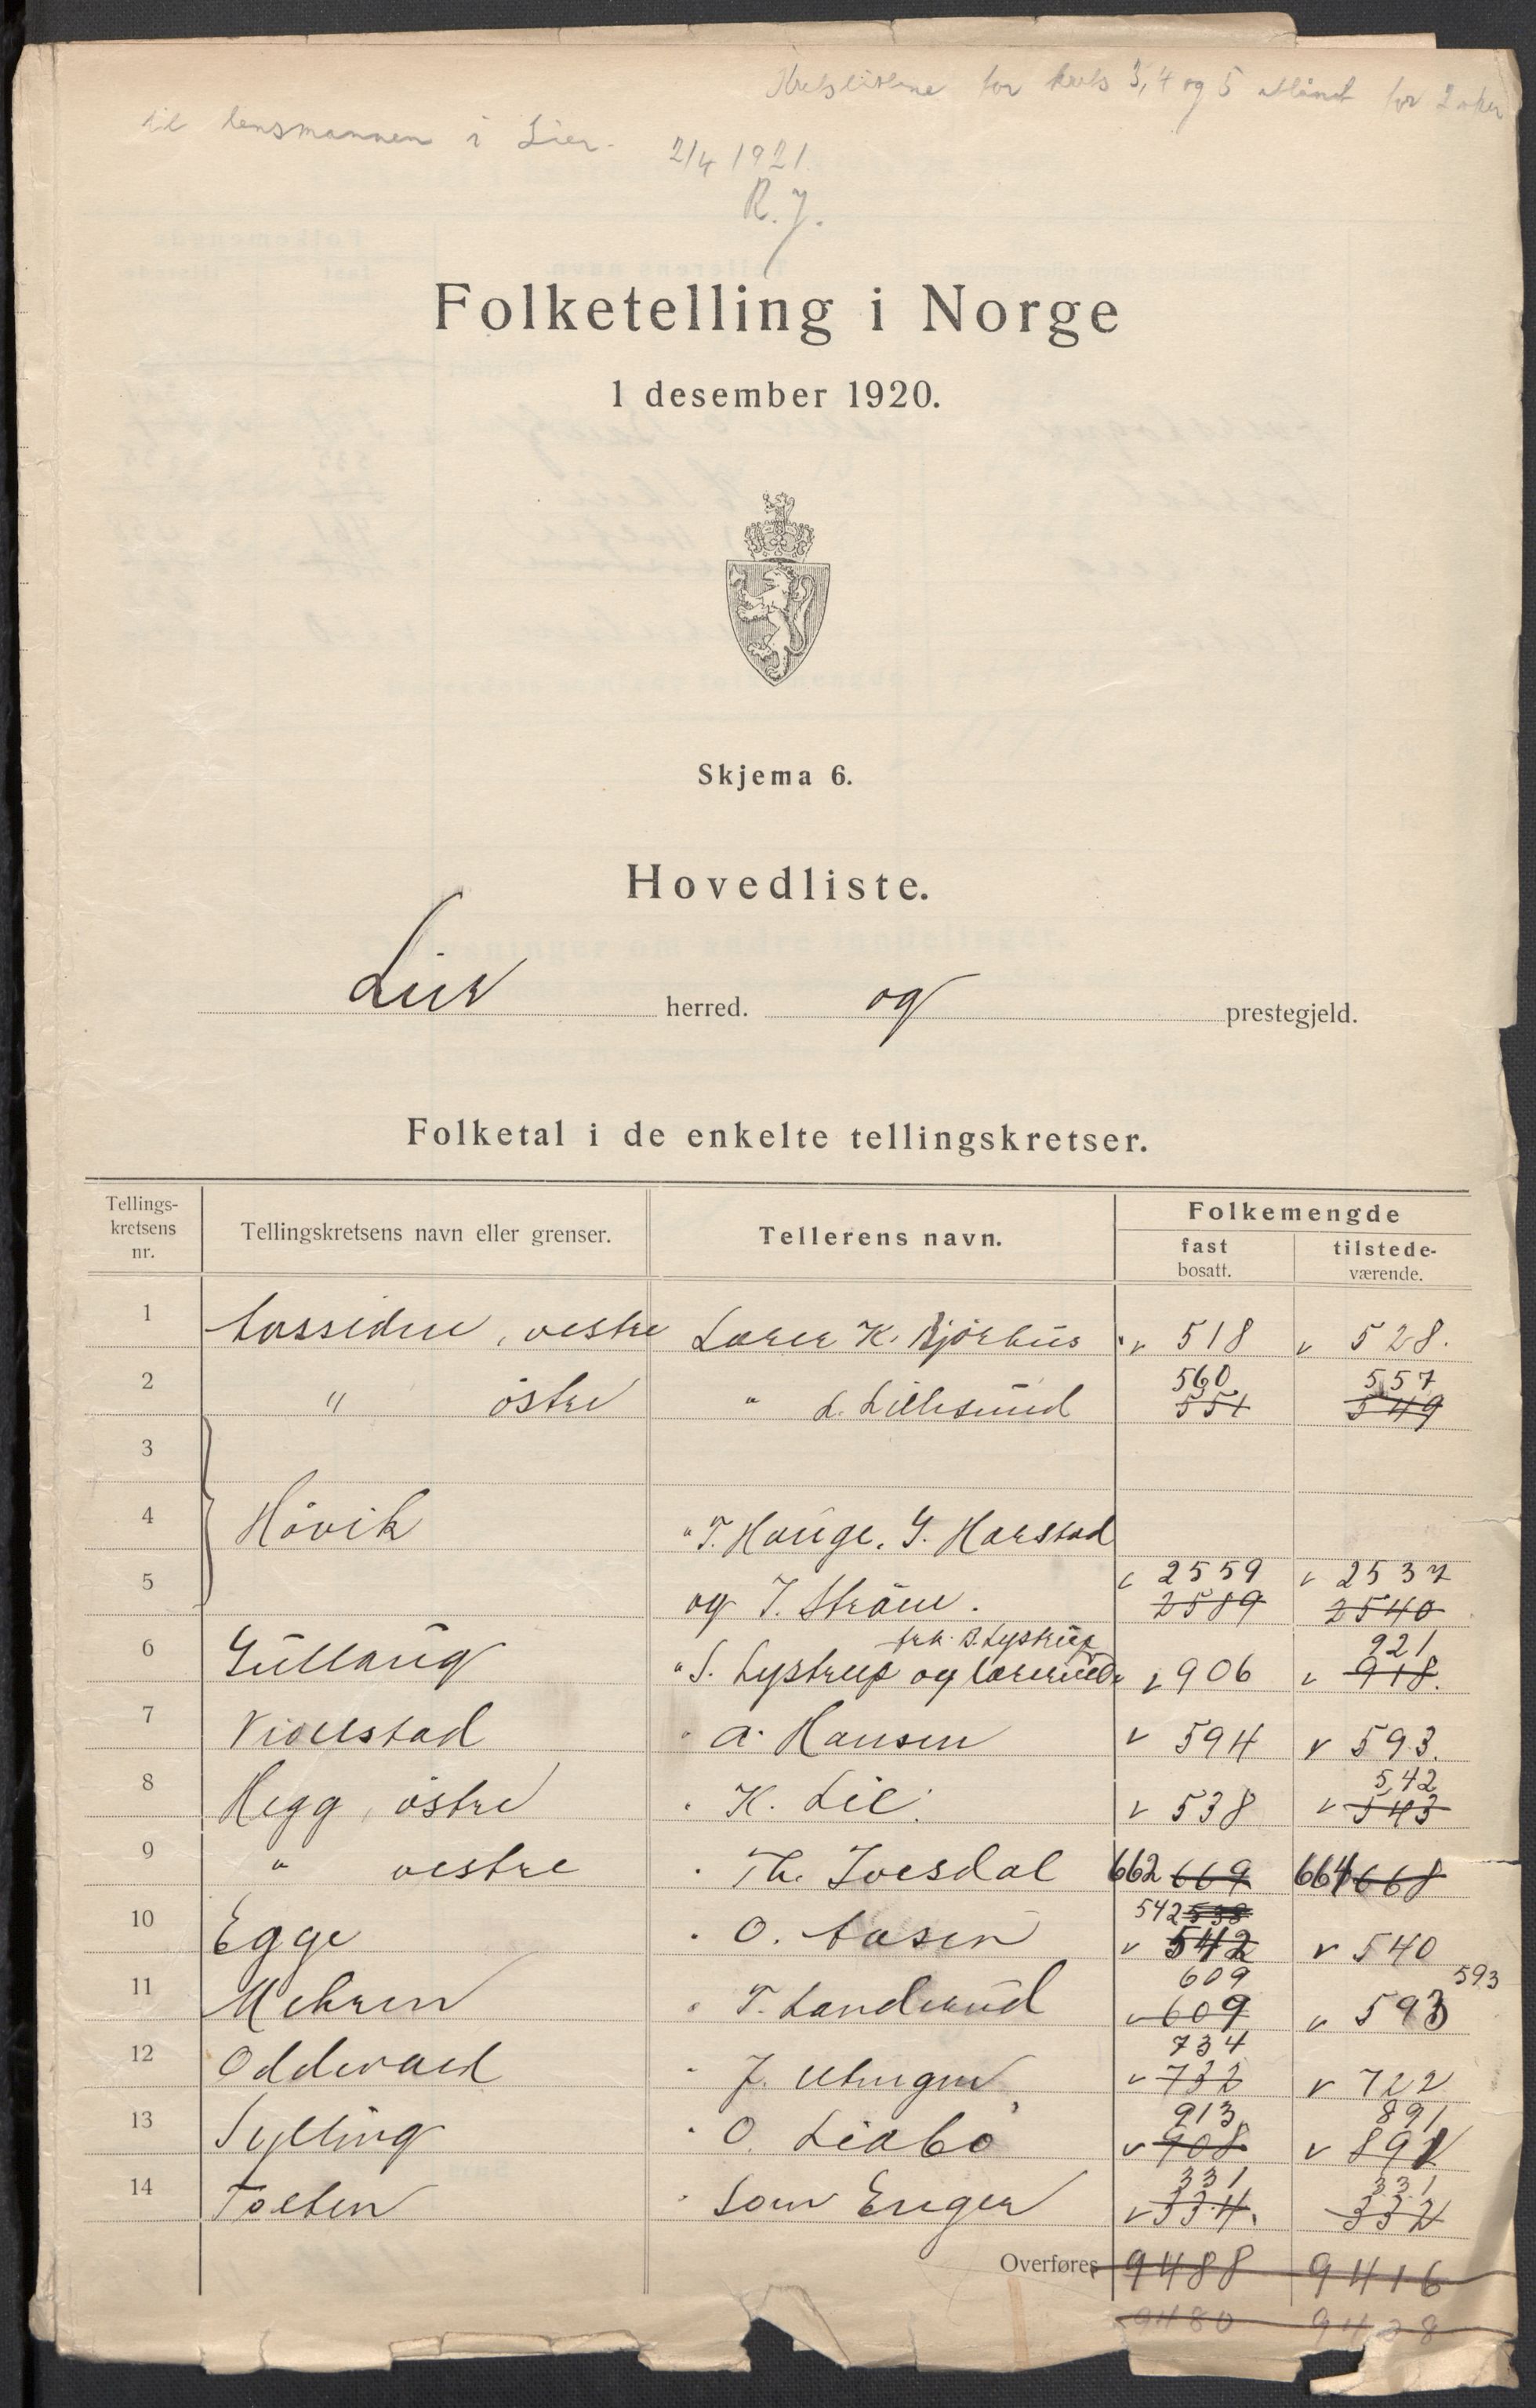 Kretslistene for krets 3, 4 og 5 utlånt for 2 uker
til lensmannen i Lier. 2/4 1921.
R. J.
Folketelling i Norge
1 desember 1920.
Skjema 6.
Hovedliste.
Lier herred. og prestegjeld.
Folketal i de enkelte tellingskretser.
Tellings-kretsens nr. Tellingskretsens navn eller grenser. Tellerens navn. Folkemengde
fast bosatt. tilstede-værende.
1 vestre Lærer K. Bjørhus v 518 v 528.
560 557
2 " østre " L. Lillesund 551 549
3
4 Høvik " T. Hauge, G. Harstad
v 2559 v 2537
5 og J. Strøm. 2589 2540
frk. B. Lystrup 921
6 Gullaug " S. Lystrup og v 906 v 918.
7 Viverstad " A. Hansen v 594 v 593.
542
8 Hegg, østre " K. Lie. v 538 v 543
9 " vestre " Th. Ivesdal 662 669 664 668
542 538
10 Egge " O. Aasen v 542 v 540
609 593
11 Mehren " T. Landerud v 609 v 593
734
12 Oddevall " J. v 732 v 722
913 891
13 Sylling " O. Liabø v 908 v 891
331 331
14 Tolten " Lars Enger v 334. 332
Overføres 9488 9416
9480 9428